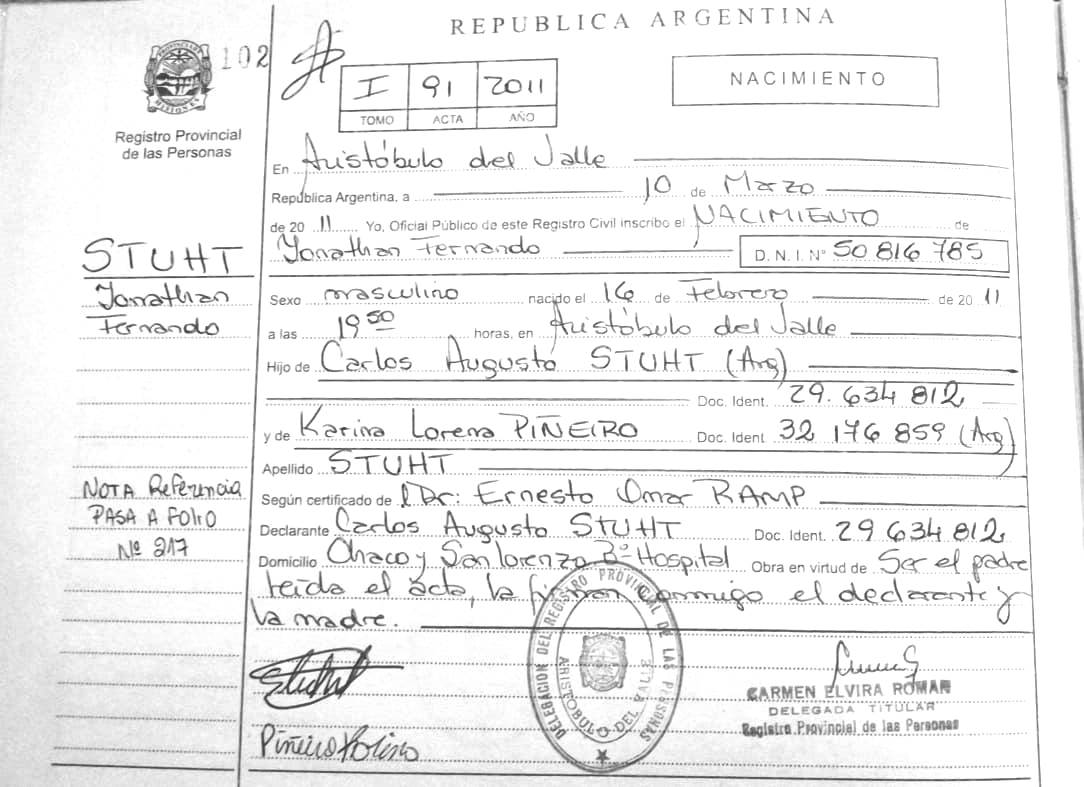 REPUBLICA ARGENTINA
102
PROVINCIA DE MISIONES
Registro Provincial
de las Personas
I 91 2011
TOMO ACTA AÑO
NACIMIENTO
En Aristóbulo del Valle
República Argentina, a 10 de Marzo
de 20 11 Yo, Oficial Público de este Registro Civil inscribo el NACIMIENTO de
Jonathan Fernando D.N.I. Nº 50 816 785
STUHT
Jonathan
Fernando
Sexo masculino nacido el 16 de Febrero de 20 11
a las 19 50 horas, en Aristóbulo del Valle
Hijo de Carlos Augusto STUHT (Arg)
Doc. Ident. 29. 634 812
y de Karina Lorena PIÑEIRO Doc. Ident 32 176 859 (Arg)
Apellido STUHT
NOTA Referencia
PASA A FOLIO
Nº 217
Según certificado de Dr: Ernesto Omar RAMP
Declarante Carlos Augusto STUHT Doc. Ident. 29 634 812
Domicilio Chaco y San Lorenzo Bº Hospital Obra en virtud de Ser el padre
leída el acta, la firman conmigo el declarante y
la madre.
DELEGACION DEL REGISTRO PROVINCIAL DE LAS PERSONAS
ARISTOBULO DEL VALLE
CARMEN ELVIRA ROMAN
DELEGADA TITULAR
Registro Provincial de las Personas
Stuht
Piñeiro